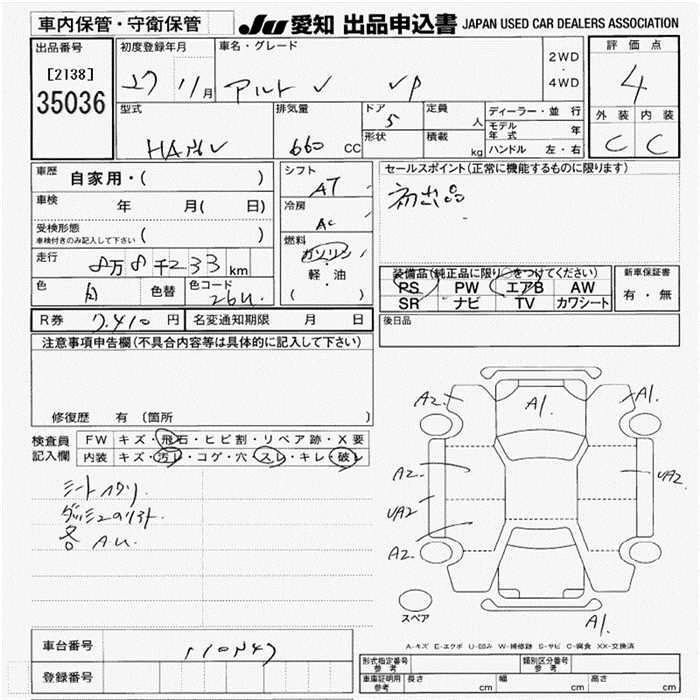 車内保管・守衛保管
JU 愛知 出品申込書 JAPAN USED CAR DEALERS ASSOCIATION
出品番号
[2138]
35036
初度登録年月
27 11月
車名・グレード
アルト VP
2WD
・
4WD
評価点
4
外装 内装
C C
型式
排気量
660 CC
ドア
5
形状
定員
人
積載
kg
ディーラー・並行
モデル年式 年
ハンドル 左・右
車歴
自家用・( )
車検
年 月( 日)
受検形態
車検付きのみ記入して下さい ( )
走行
8万8千233km
色
白
色替
色コード
26U
シフト
AT
冷房
AC
燃料
ガソリン
軽・油
( )
セールスポイント(正常に機能するものに限ります)
初出品
装備品(純正品に限り○をつけてください)
PS PW エアB AW
SR ナビ TV カワシート
新車保証書
有・無
後日品
R券 7,410円
名変通知期限 月 日
注意事項申告欄(不具合内容等は具体的に記入して下さい)
修復歴 有 〔箇所 〕
検査員
記入欄
FW キズ・飛石・ヒビ割・リペア跡・X要
内装 キズ・汚レ・コゲ・穴・スレ・キレ・破レ
シートヘタリ.
各AU.
A2 A1 A1.
A2 UA2
UA2
A2
A1.
スペア
A-キズ E-エクボ U-凹み W-補修跡 S-サビ C-腐食 XX-交換済
車台番号
登録番号
形式指定番号
参考
類別区分番号
参考
車庫証明用
参考
長さ cm
幅 cm
高さ cm